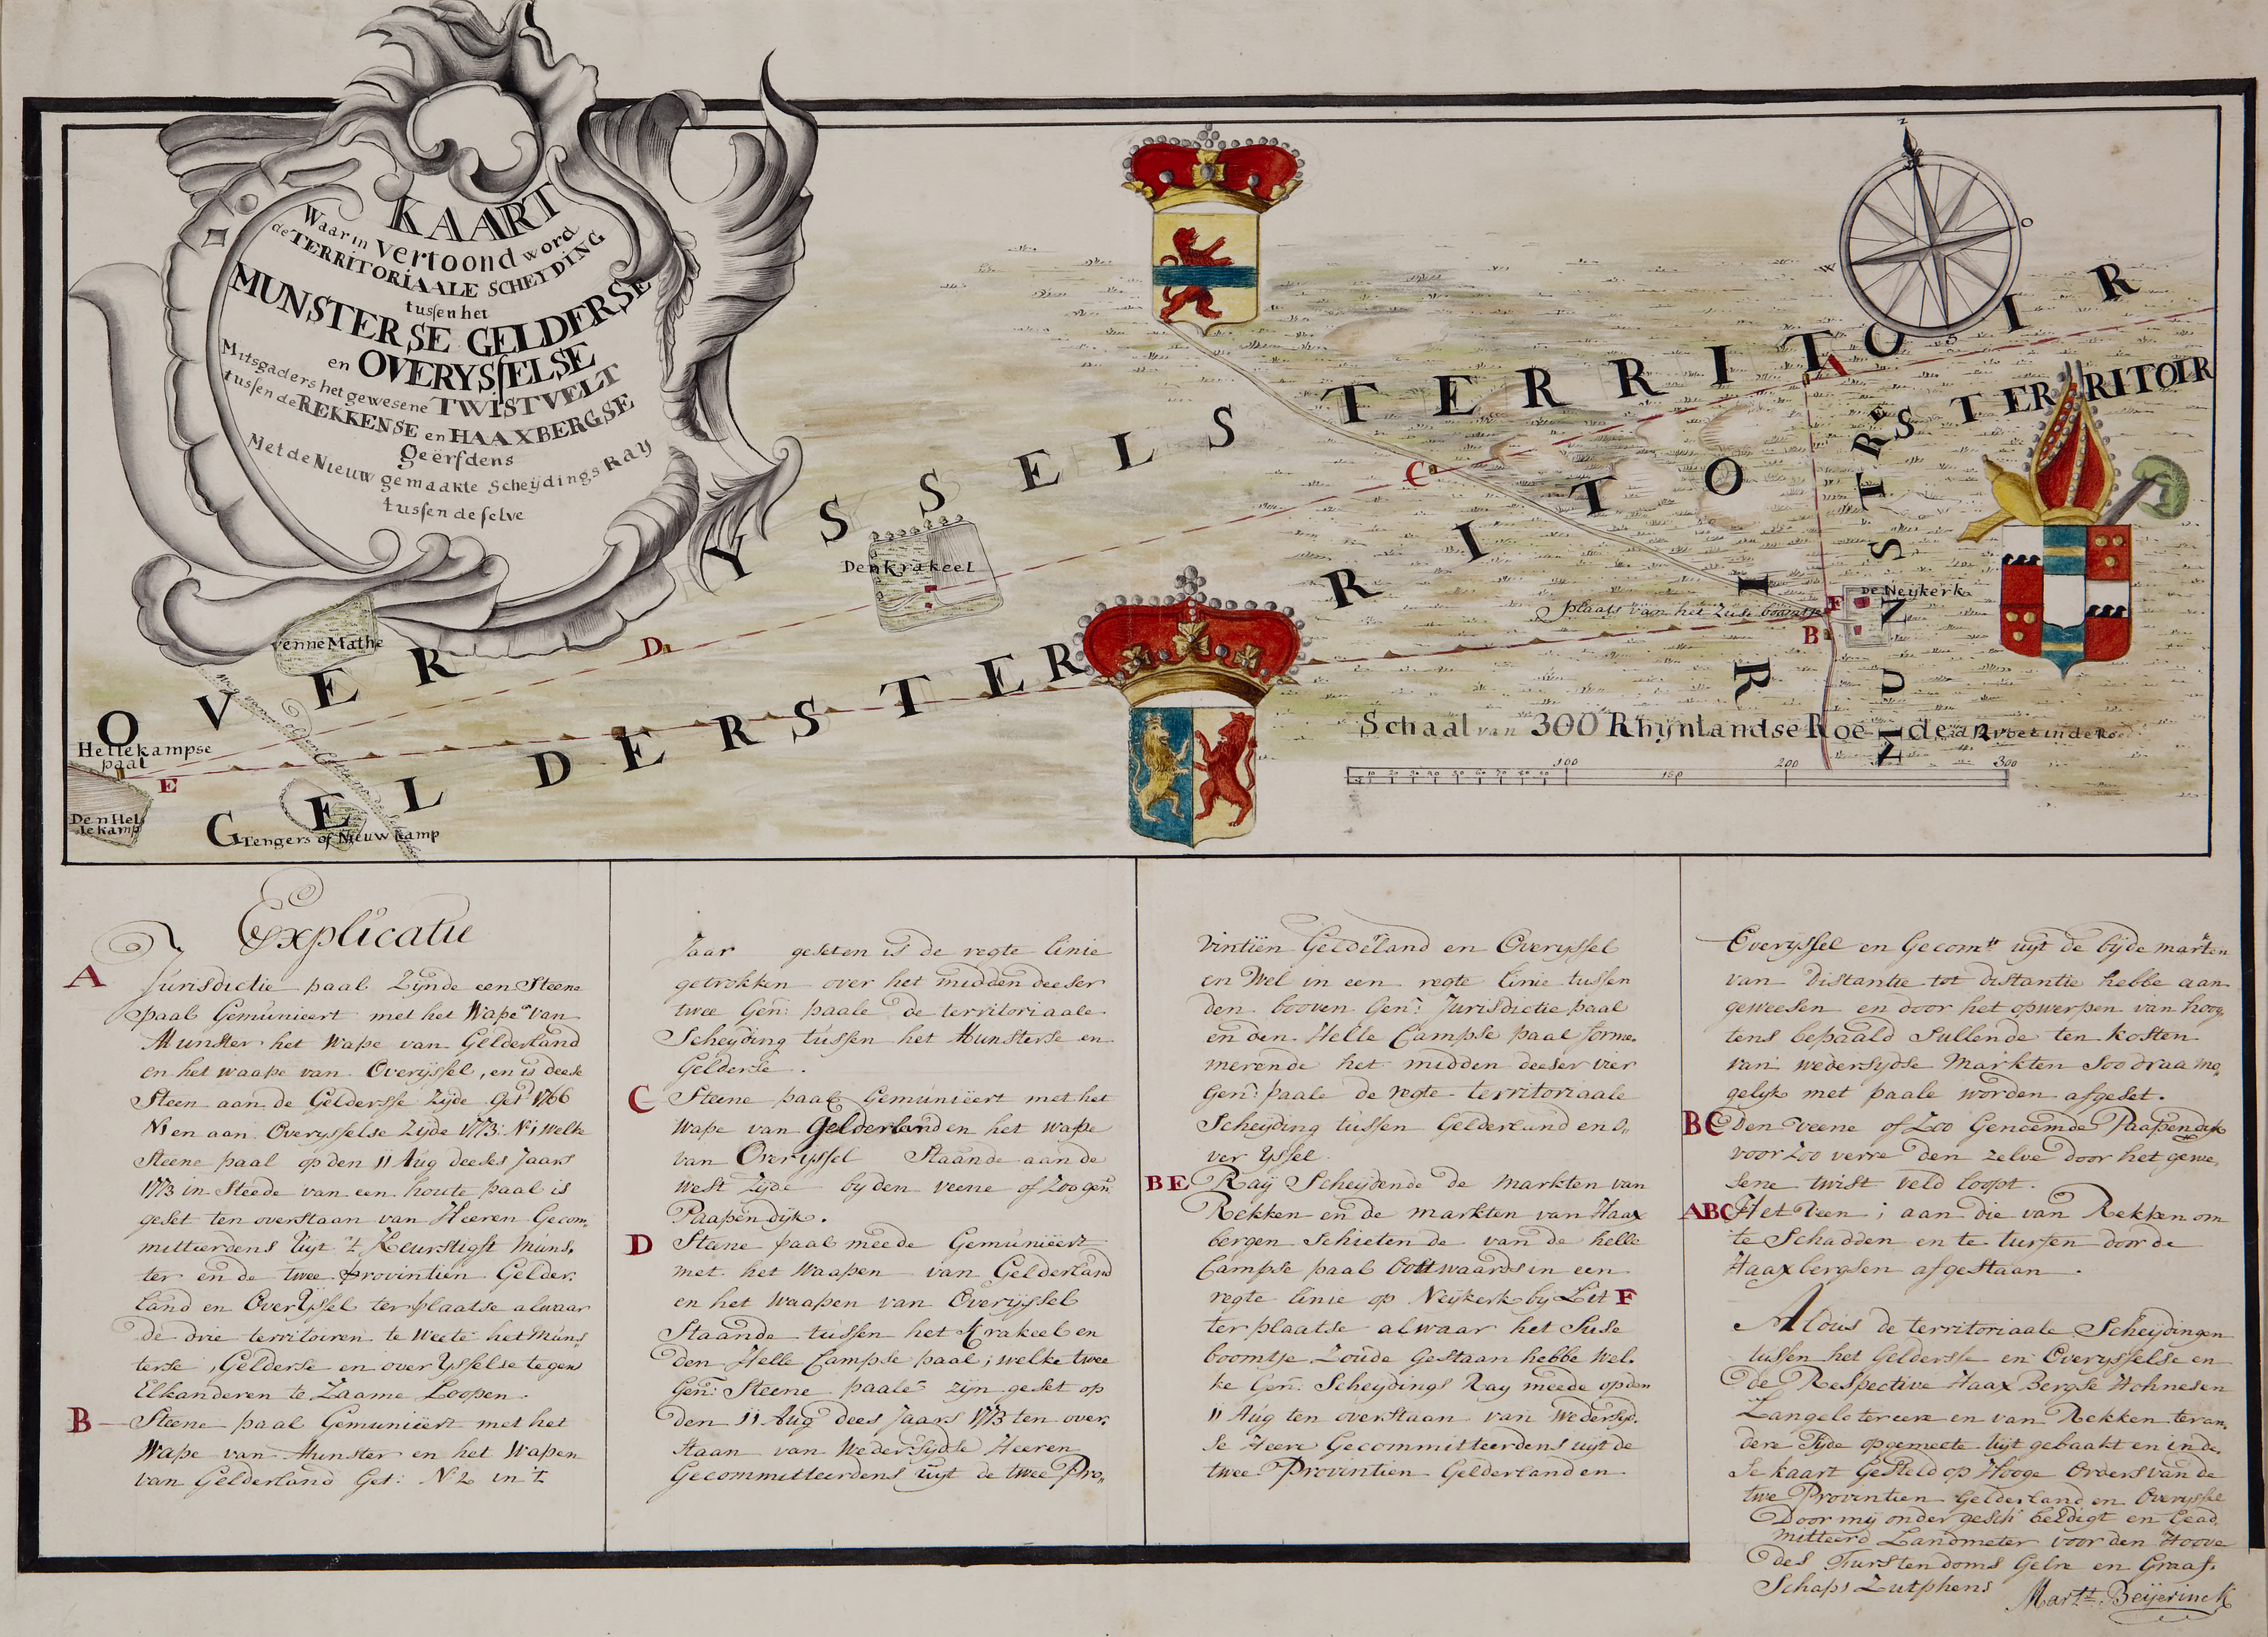 KAART
Waarin vertoond word
de TERRITORIAALE SCHEYDING
tussen het
MUNSTERSE GELDERSE
en OVERYSSELSE
Mitsgaders het gewesene TWISTVELT
tussen de REKKENSE en HAAXBERGSE
Geërfdens
Met de Nieuw gemaakte Scheijdings RAY
tussen deselve
Z
O
W
OVER YSSELS TERRITOIR
GELDERS TERRITOIR
MUNSTERS TERRITOIR
A
C
D
E
B
F
Den Krakeel
Venne Mathe
Hellekampse
paal
Den Hel
lekamp
Tengers of Nieuw kamp
De Neijkerk
plaats van het Zuse boomtje
Schaal van 300 Rhijnlandse Roeden
10 20 30 40 50 60 70 80 90 100 150 200 300
Explicatie
A Jurisdictie paal Zijnde een Steene
paal Gemunieert met het Wape van
Munster het Wape van Gelderland
en het waape van Overijssel, en is deese
Steen aan de Geldersse Zijde Get 1766
N1 en aan Overijsselse Zijde 1773: N:1 welke
Steene paal op den 11 Aug deeses Jaars
1773 in Steede van een houte paal is
geset ten overstaan van Heeren Gecom,
mitteerdens uijt 't Keurstigst Muns,
ter en de twee provintien Gelder,
land en OverYssel ter plaatse alwaar
de drie territoiren te weete het Muns
terse, Gelderse en over Ysselse tegens
Elkanderen te Zaame Loopen.
B Steene paal Gemunieert met het
Wape van Munster en het Wapen
van Gelderland Get: N 2 in 't
Jaar geseten is de regte linie
getrokken over het midden deeser
twee Gen: paale de territoriaale
Scheijding tussen het Munsterse en
Gelderse.
C Steene paal Gemunieert met het
Wape van Gelderland en het wape
van Overijssel Staande aan de
West Zijde bij den veene of Zoo gen
Paapendijk.
D Steene paal meede Gemunieert
met het Waapen van Gelderland
en het Waapen van Overijssel
Staande tussen het Krakeel en
den Helle Campse paal; welke twee
Gen: Steene paale zijn geset op
den 11 Aug dees Jaars 1773 ten over,
staan van Wedersijdse Heeren
Gecommitteerdens uijt de twee Pro,,
vintiën Gelderland en Overijssel
en Wel in een regte linie tussen
den booven Gen: Jurisdictie paal
en den Helle Campse paal forme,
merende het midden deeser vier
Gen: paale de regte territoriaale
Scheijding tussen Gelderland en O,,
ver Yssel
BE Raij Scheijdende de markten van
Rekken en de markten van Haax
bergen Schietende van de helle
Campse paal Oostwaards in een
regte linie op Neijkerk bij Lit F
ter plaatse alwaar het Suse
boomtje Zoude Gestaan hebbe Wel,
ke Gen: Scheijdings Raij meede op den
11 Aug ten overstaan van Wedersijd,
se Heere Gecommitteerdens uijt de
twee Provintien Gelderland en
Overijssel en Gecomtt uijt de bijde markten
van Distantie tot distantie hebbe aan
geweesen en door het opwerpen van hoog
tens bepaald Sullende ten kosten
van wedersijdse Markten Soo draa mo,
gelijk met paale worden afgeset.
BC Den Veene of Zoo Genoemde Paapendijk
voor Zoo verre den zelve door het gewe,
sene twist veld loopt.
ABC Het Veen; aan die van Rekken om
te Schadden en te turfen door de
Haaxbergsen afgestaan.
Aldus de territoriaale Scheijdingen
tussen het Geldersse en Overijsselse en
de Respective Haax Bergse Hohnesen
Langelotereen en van Rekken ter an,
dere Zijde opgemeete uijt gebaakt en in de,
se kaart Gesteld op Hooge Orders van de
twe Provintien Gelderland en Overijssel
Door mij onder gesch: beëdigt en Gead,
mitteerd Landmeter voor den Hoove
des Furstendoms Gelre en Graaf,
Schaps Zutphens Martt. Beijerinck